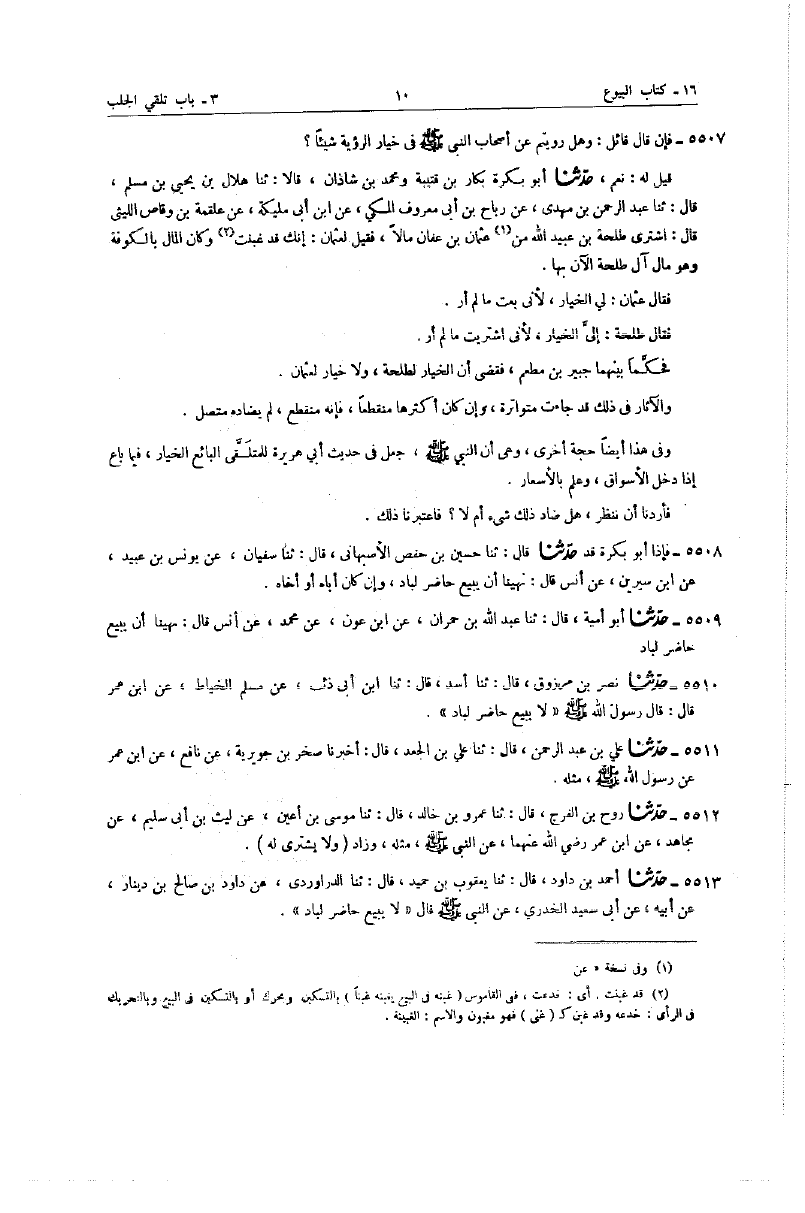 ١٦ ـ كتاب البيوع ١٠ ٣ ـ باب تلقي الجلب
٥٥٠٧ ـ فإن قال قائل : وهل رويتم عن أصحاب النبي ﷺ فى خيار الرؤية شيئاً ؟
قيل له : نعم ، حدّثنا أبو بكرة بكار بن قتيبة ومحمد بن شاذان ، قالا : ثنا هلال بن يحيى بن مسلم ،
قال : ثنا عبد الرحمن بن مهدى ، عن رباح بن أبى معروف المكي ، عن ابن أبى مليكة ، عن علقمة بن وقاص الليثى
قال : اشترى طلحة بن عبيد الله من(١) عثمان بن عفان مالاً ، فقيل لعثمان : إنك قد غبنت(٢) وكان المال بالكوفة
وهو مال آل طلحة الآن بها .
فقال عثمان : لي الخيار ، لأنى بعت ما لم أر .
فقال طلحة : إلىَّ الخيار ، لأنى اشتريت ما لم أر .
فحكَّما بينهما جبير بن مطعم ، فقضى أن الخيار لطلحة ، ولا خيار لعثمان .
والآثار فى ذلك قد جاءت متواترة ، وإن كان أكثرها منقطعاً ، فإنه منقطع ، لم يضاده متصل .
وفى هذا أيضاً حجة أخرى ، وهى أن النبي ﷺ ، جعل فى حديث أبي هريرة للمتلَقَّى البائع الخيار ، فيما باع
إذا دخل الأسواق ، وعلم بالأسعار .
فأردنا أن ننظر ، هل ضاد ذلك شىء أم لا ؟ فاعتبرنا ذلك .
٥٥٠٨ ـ فإذا أبو بكرة قد حدّثنا قال : ثنا حسين بن حفص الأصبهانى ، قال : ثنا سفيان ، عن يونس بن عبيد ،
عن ابن سيرين ، عن أنس قال : نهينا أن يبيع حاضر لباد ، وإن كان أباه أو أخاه .
٥٥٠٩ ـ حدّثنا أبو أمية ، قال : ثنا عبد الله بن حمران ، عن ابن عون ، عن محمد ، عن أنس قال : نهينا أن يبيع
حاضر لباد
٥٥١٠ ـ حدّثنا نصر بن مرزوق ، قال : ثنا أسد ، قال : ثنا ابن أبى ذئب ، عن مسلم الخياط ، عن ابن عمر
قال : قال رسول الله ﷺ « لا يبيع حاضر لباد » .
٥٥١١ ـ حدّثنا علي بن عبد الرحمن ، قال : ثنا علي بن الجعد ، قال : أخبرنا صخر بن جويرية ، عن نافع ، عن ابن عمر
عن رسول الله ﷺ ، مثله .
٥٥١٢ ـ حدّثنا روح بن الفرج ، قال : ثنا عمرو بن خالد ، قال : ثنا موسى بن أعين ، عن ليث بن أبى سليم ، عن
مجاهد ، عن ابن عمر رضي الله عنهما ، عن النبي ﷺ ، مثله ، وزاد ( ولا يشترى له ) .
٥٥١٣ ـ حدّثنا أحمد بن داود ، قال : ثنا يعقوب بن حميد ، قال : ثنا الدراوردى ، عن داود بن صالح بن دينار ،
عن أبيه ، عن أبى سعيد الخدري ، عن النبي ﷺ قال « لا يبيع حاضر لباد » .
(١) وفى نسخة « عن
(٢) قد غبنت . أى : خدعت ، فى القاموس ( غبنه فى البيع يغبنه غبناً ) بالتسكين ومحرك أو بالتسكين فى البيع وبالتحريك
فى الرأى : خدعه وقد غبن كـ ( غنى ) فهو مغبون والاسم : الغبينة .